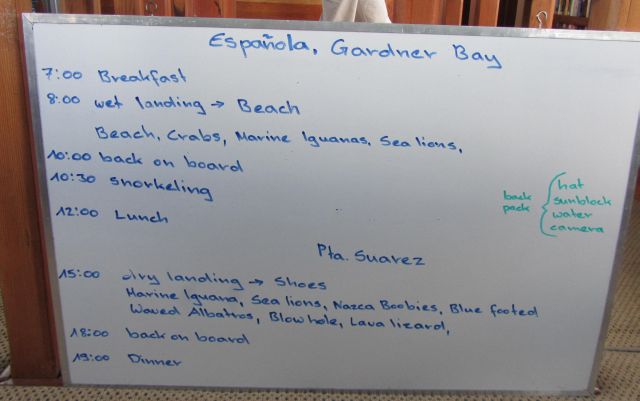 Española, Gardner Bay
7:00 Breakfast
8:00 wet landing → Beach
Beach, Crabs, Marine Iguanas, Sea lions,
10:00 back on board
10:30 snorkeling
12:00 Lunch
back pack { hat
sunblock
water
camera
Pta. Suarez
15:00 dry landing → Shoes
Marine Iguana, Sea lions, Nazca Boobies, Blue footed
Waved Albatros, Blowhole, Lava lizard,
18:00 back on board
19:00 Dinner